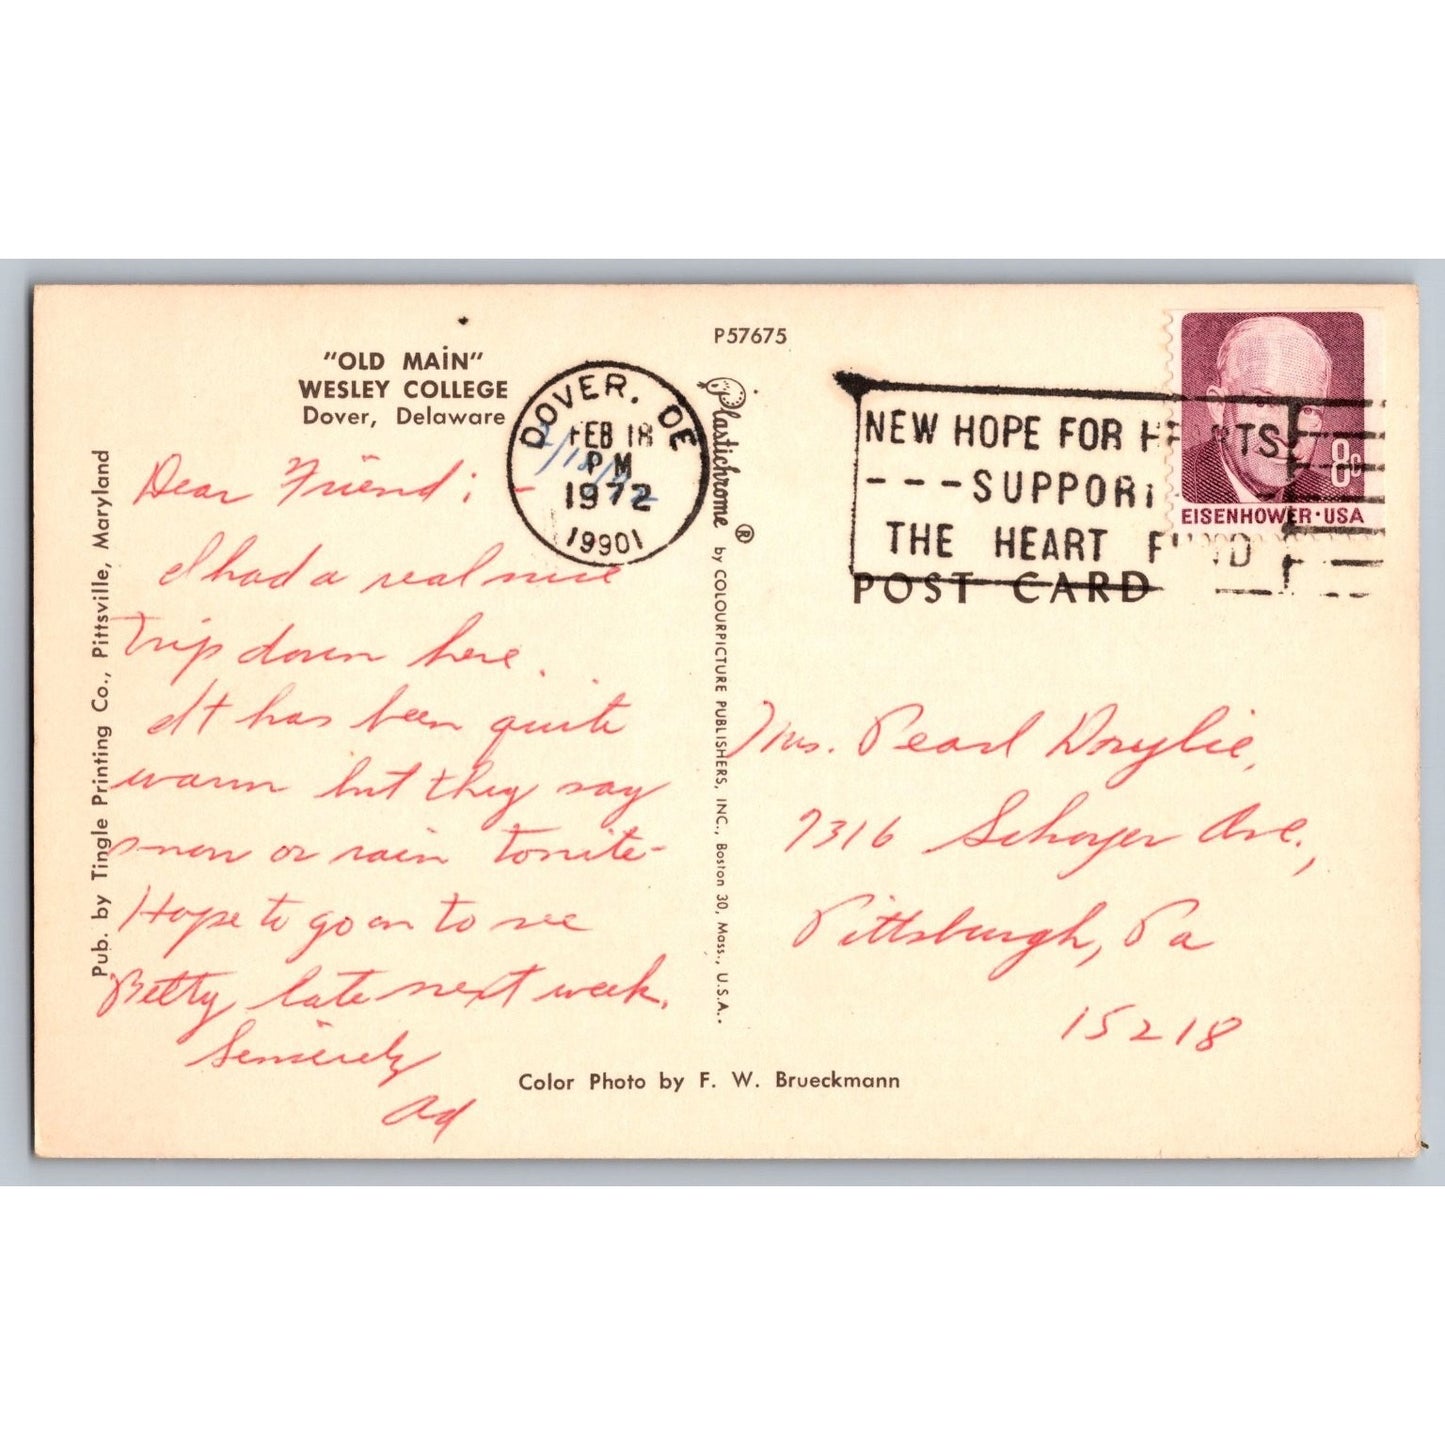 "OLD MAiN"
WESLEY COLLEGE
Dover, Delaware
Pub. by Tingle Printing Co., Pittsville, Maryland
Dear Friend; -
I had a real nice
trip down here.
It has been quite
warm but they say
snow or rain tonite-
Hope to go on to see
Betty late next week.
Sincerely
DOVER, DE
FEB 18
PM
1972
19901
2/18/72
P57675
Plastichrome ® by COLOURPICTURE PUBLISHERS, INC., Boston 30, Mass., U.S.A.
NEW HOPE FOR HEARTS
---SUPPORT
THE HEART FUND
8c
EISENHOWER·USA
POST CARD
Mrs. Pearl
7316 Schoyer Ave.,
Pittsburgh, Pa
15218
Color Photo by F. W. Brueckmann